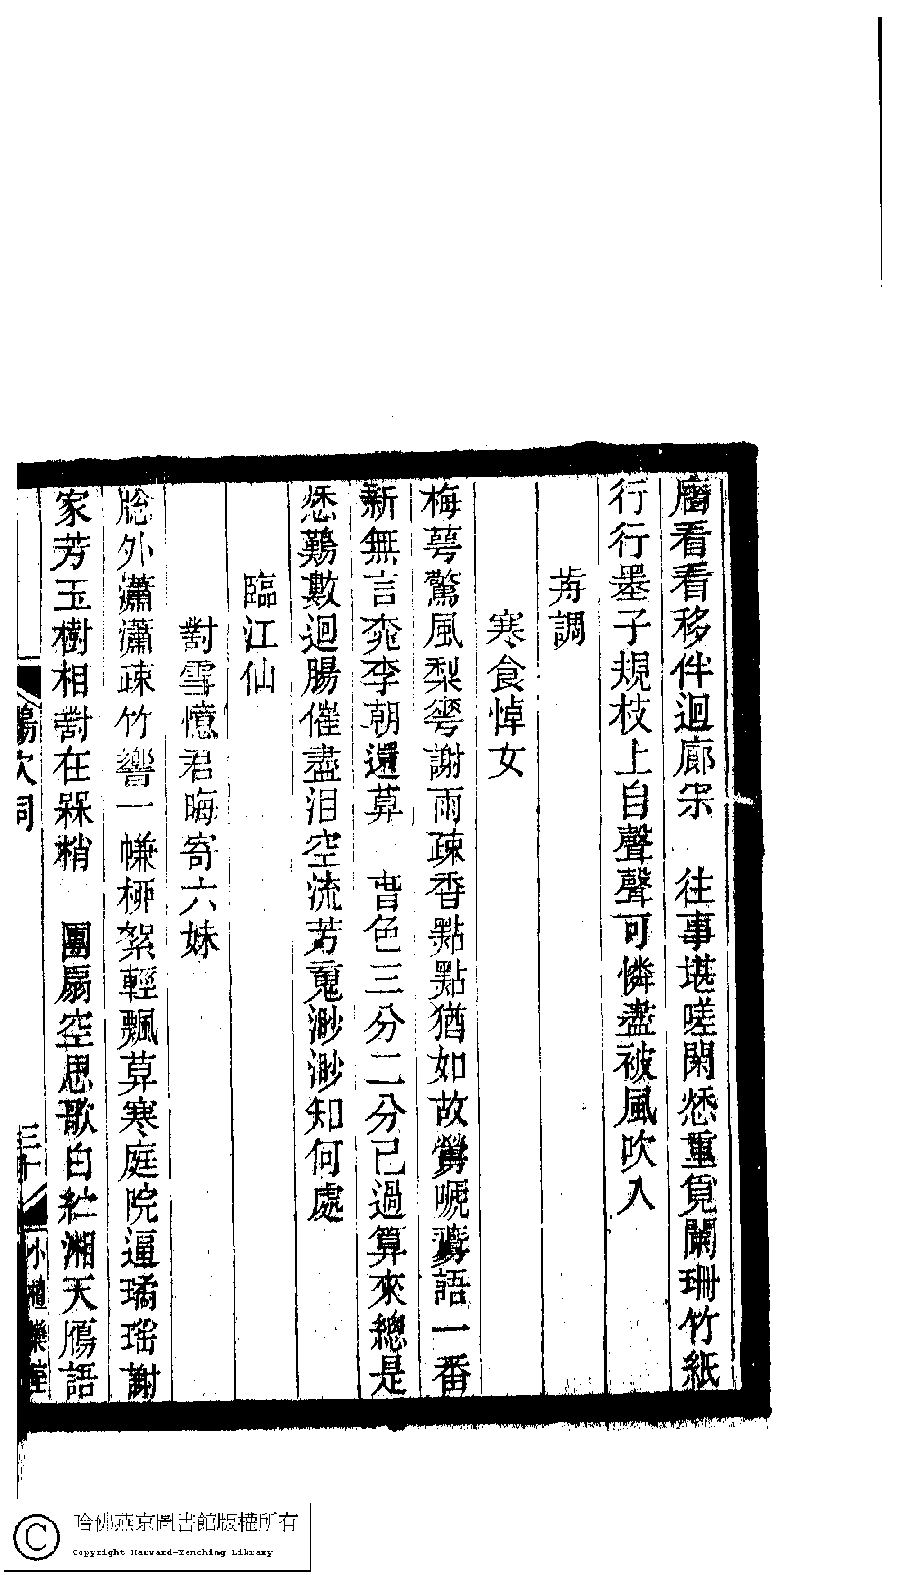 看看移伴迴廊宋 往事堪嗟閑愁重覓闌珊竹紙
行行墨子規枝上自聲聲可憐盡被風吹入
歬調
寒食悼女
梅萼驚風梨雩謝雨疎香點點猶如故鶯嗁語一番
新無言桃李朝還算 萅色三分二分已過算來總是
愁鷄數迴腸催盡泪空流芳䰟渺渺知何處
臨江仙
對雪憶君晦寄六妹
牎外瀟瀟疎竹響一㡘桺絮輕飄算寒庭院逼璚瑶謝
家芳玉樹相對在槑梢 團扇空思歌白紵湘天鴈語
次詞
三十
小檀欒室
哈佛燕京圖書館版權所有
Copyright Harvard-Yenching Library